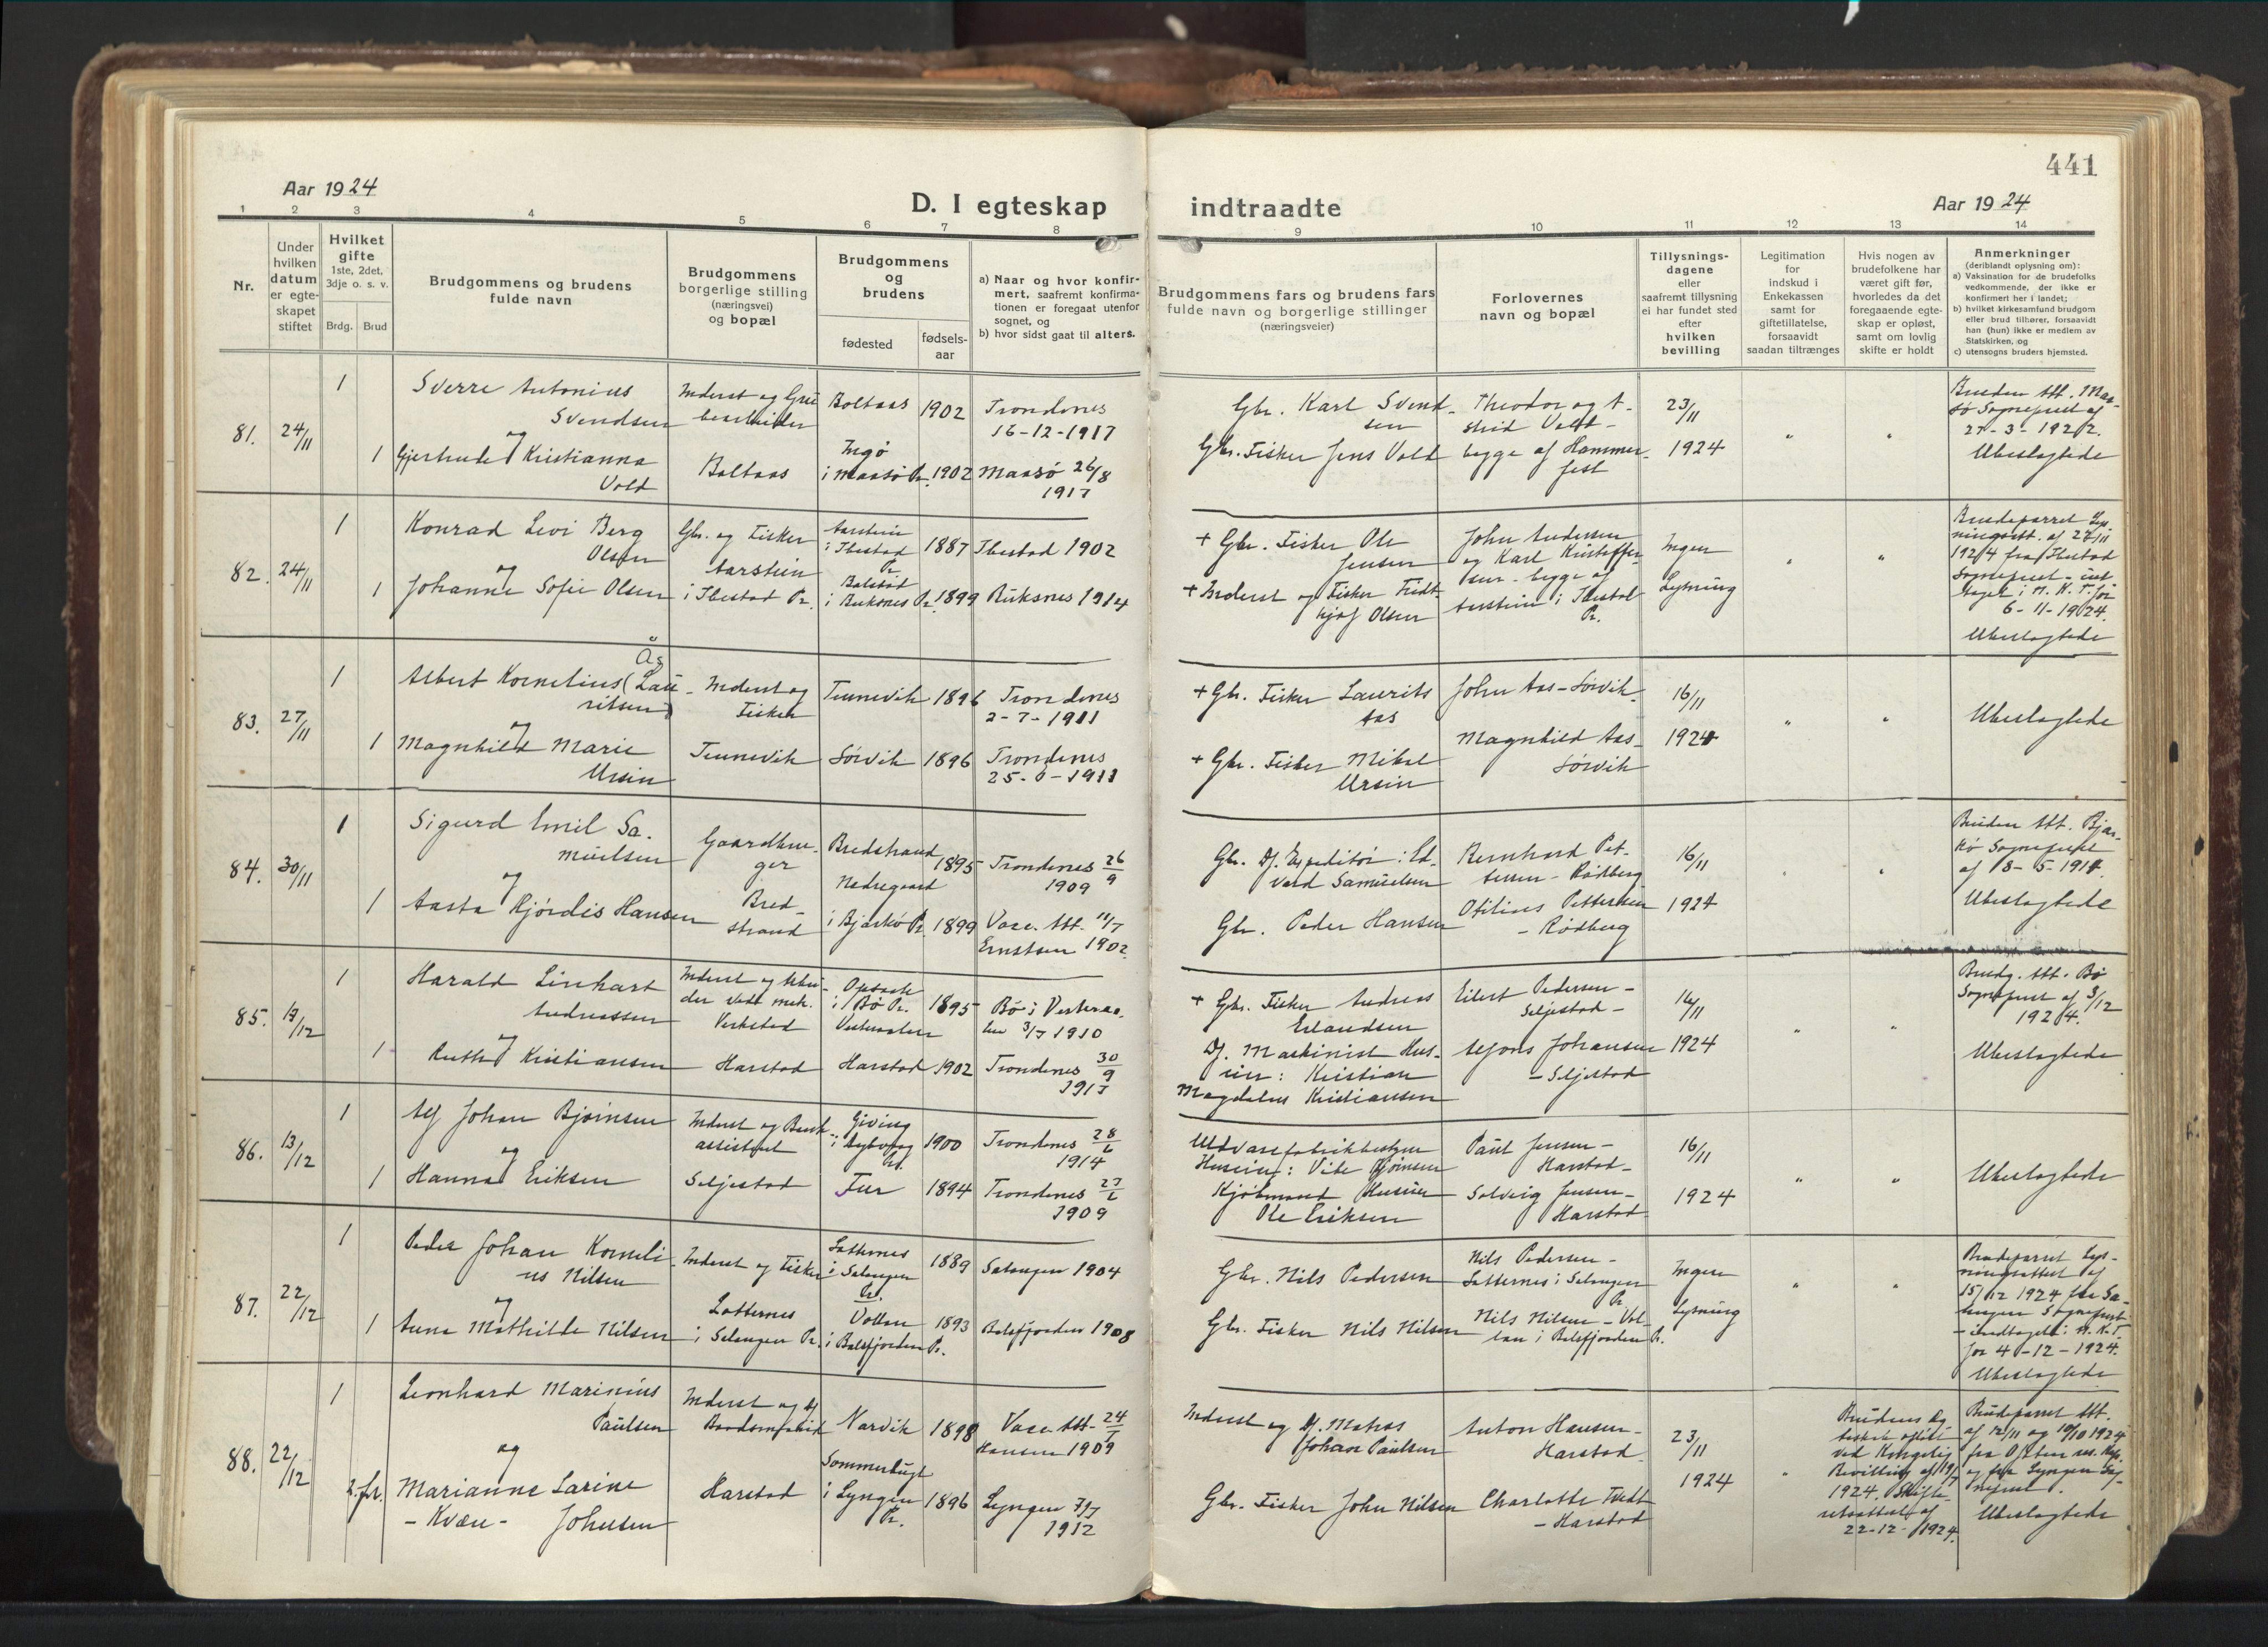 441
Aar 1924
D. I egteskap
indtraadte
Aar 1924
1 2 3 4 5 6 7 8 9 10 11 12 13 14
Nr.
Under
hvilken
datum
er egte-
skapet
stiftet
Hvilket
gifte
1ste, 2det,
3dje o. s. v.
Brdg. Brud
Brudgommens og brudens
fulde navn
Brudgommens
borgerlige stilling
(næringsvei)
og bopæl
Brudgommens
og
brudens
fødested
fødsels-
aar
a) Naar og hvor konfir-
mert, saafremt konfirma-
tionen er foregaat utenfor
sognet, og
b) hvor sidst gaat til alters.
Brudgommens fars og brudens fars
fulde navn og borgerlige stillinger
(næringsveier)
Forlovernes
navn og bopæl
Tillysnings-
dagene
eller
saafremt tillysning
ei har fundet sted
efter
hvilken
bevilling
Legitimation
for
indskud i
Enkekassen
samt for
giftetillatelse,
forsaavidt
saadan tiltrænges
Hvis nogen av
brudefolkene har
været gift før,
hvorledes da det
foregaaende egte-
skap er opløst,
samt om lovlig
skifte er holdt
Anmerkninger
(deriblandt oplysning om):
a) Vaksination for de brudefolks
vedkommende, der ikke er
konfirmert her i landet;
b) hvilket kirkesamfund brudgom
eller brud tilhører, forsaavidt
han (hun) ikke er medlem av
Statskirken, og
c) utensogns bruders hjemsted.
81. 24/11
1 Sverre Antonius
Svendsen
og
1 Gjertrude Kristianna
Vold
Inderst og Gru
bearbeider
Boltaas
Boltaas 1902
Ingø
i Maasø Pr. 1902
Trondenes
16-12-1917
Maasø 26/8
1917
Gbr. Karl Svend-
sen
Gbr. Fisker Jens Vold
Theodor og A-
strid Vold -
begge af Hammer-
fest
23/11
1924
Bruden Att. Maa-
sø Sognepræst af
27-3-1922.
Ubeslægtede
82. 24/11
1 Konrad Levi Berg
Olsen
og
1 Johanne Sofie Olsen
Gbr. og Fisker
Aarstein
i Ibestad Pr.
Aarstein
i Ibestad
Pr. 1887
Balstad
i Buksnes Pr. 1899
Ibestad 1902
Buksnes 1914
+ Gbr. Fisker Ole
Jensen
+ Inderst og Fisker Fridt-
hjof Olsen
John Andersen
og Karl Kristoffer-
sen - begge af
Aarstein i Ibestad
Pr.
Ingen
Lysning
Brudeparret Lys-
ningsatt. af 22/11
1924 fra Ibestad
Sognepræst - ind-
taget i N. K. T. for
6-11-1924.
Ubeslægtede
83. 27/11
Ås
1 Albert Kornelius (Lau-
ritsen)
og
1 Magnhild Marie
Ursin
Inderst og
Fisker
Tennevik
Tennevik 1896
Sørvik 1896
Trondenes
2-7-1911
Trondenes
25-6-1911
+ Gbr. Fisker Laurits
Aas
+ Gbr. Fisker Mikal
Ursin
John Aas - Sørvik
Magnhild Aas -
Sørvik
16/11
1924
Ubeslægtede
84. 30/11
1 Sigurd Emil Sa-
muelsen
og
1 Aasta Hjørdis Hansen
Gaardbru-
ger
Bred-
strand
Bredstrand
1895
Nedregaard
i Bjarkø Pr. 1899
Trondenes 26/9
1909
Vacc. Att. 11/7
Ernstsen 1902
Gbr. Dj. Expeditør: Ed-
vard Samuelsen
Gbr. Peder Hansen
Bernhard Pet-
tersen - Rødberg
Otilius Pettersen
- Rødberg
16/11
1924
Bruden Att. Bjar-
kø Sognepræst
af 18-5-1914.
Ubeslægtede
85. 13/12
1 Harald Linhart
Andreassen
og
1 Ruth Kristiansen
Inderst og Arbei-
der ved mek.
Verksted
Harstad
i Bø Pr.
Vesteraalen
1895
Harstad 1902
Bø i Vesteraa-
len 3/7 1910
Trondenes 30/9
1917
+ Gbr. Fisker Andreas
Erlandsen
Dj. Maskinist Hus-
eier: Kristian
Magdalus Kristiansen
Eilert Pedersen -
Seljestad -
Alfons Johansen
- Seljestad
16/11
1924
Brudg. Att. Bø
Sognepræst af 3/12
1924.
Ubeslægtede
86. 13/12
1 Alf Johan Bjørnsen
og
1 Hanna Eriksen
Inderst og Bank-
assistent
Seljestad
Giving
i Dybvaag
Pr. 1900
Fur 1894
Trondenes 28/6
1914
Trondenes 27/6
1909
Uldvarefabrikbestyrer
Huseier: Vibe Bjørnsen
Kjøbmand Huseier
Ole Eriksen
Paul Jensen -
Harstad -
Solveig Jensen -
Harstad
16/11
1924
Ubeslægtede
87. 22/12
1 Peder Johan Korneli-
us Nilsen
og
1 Anna Mathilde Nilsen
Inderst og Fisker
Løtternes
i Salangen Pr.
i Salangen
Pr. 1889
Vollan
i Balsfjorden Pr. 1893
Salangen 1904
Balsfjorden 1908
Gbr. Nils Pedersen
Gbr. Fisker Nils Nilsen
Nils Pedersen -
i Salangen
Pr.
Nils Nilsen - Vol-
lan i Balsfjorden Pr.
Ingen
Lysning
Brudeparret Lys-
ningsattest af
15/12 1924 fra Sa-
langen Sognepræst
- indtaget i N. K. T.
for 4-12-1924.
Ubeslægtede
88. 22/12
1 Leonhard Marinius
Paulsen
og
2. fr. Marianne Larine
- Kvæn - Johnsen
Inderst og Dj.
Harstad
Narvik 1898
Sommerbugt
i Lyngen
Pr. 1896
Vacc. Att. 24/7
Hansen 1909
Lyngen 7/7
1912
Inderst og Dj. Matros
Johan Paulsen
Gbr. Fisker John Nilsen
Anton Hansen -
Harstad
Charlotte Tvedt
- Harstad
23/11
1924
Brudens Æg-
teskab opløst
ved Kongelig
Bevilling af 19/7
1924. Skifte-
retsattest af
22-12-1924.
Brudparret Att.
af 12/11 og 19/10 1924
fra Ofoten
og fra Lyngen Sog-
nepræst.
Ubeslægtede